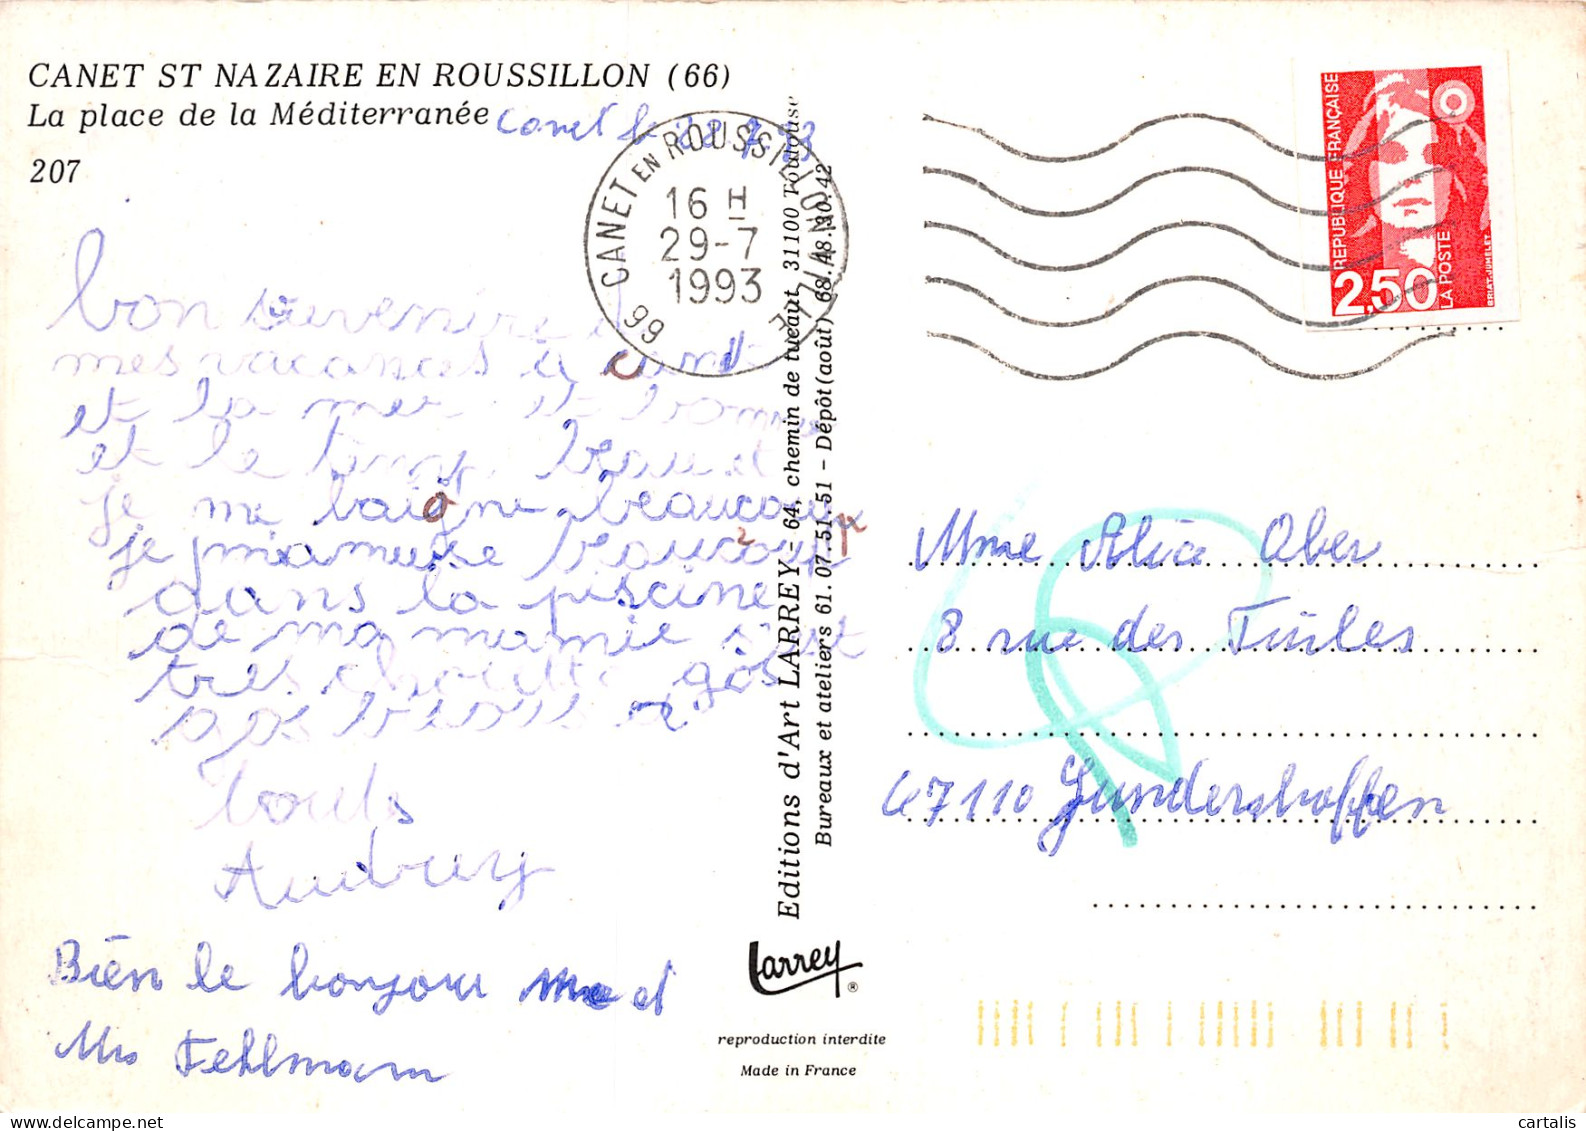 CANET ST NAZAIRE EN ROUSSILLON (66)
La place de la Méditerranée
Canet le 7 93
207
66 CANET EN ROUSSILLON VILLE
16 H
29-7
1993
REPUBLIQUE FRANÇAISE
2,50
LA POSTE
BRIAT-JUMELET
bon souvenire
mes vacances à canet
et la mer et bonne
et le beau et
je me baigne beaucoup
je m'amuse beaucoup
dans la piscine
de ma mamie s'est
tres chouette gos
gos
Audrey
Bien le bonjour Mme et
Mrs Fehlmann
Editions d'Art LARREY - 64, chemin de tucaut, 31100 Toulouse
Bureaux et ateliers 61.07.51.51 - Dépôt (août) 68.48.30.42
Larrey ®
reproduction interdite
Made in France
Mme Alice Ober
8 rue des Tuiles
67110 Gundershoffen
delcampe.net
cartalis